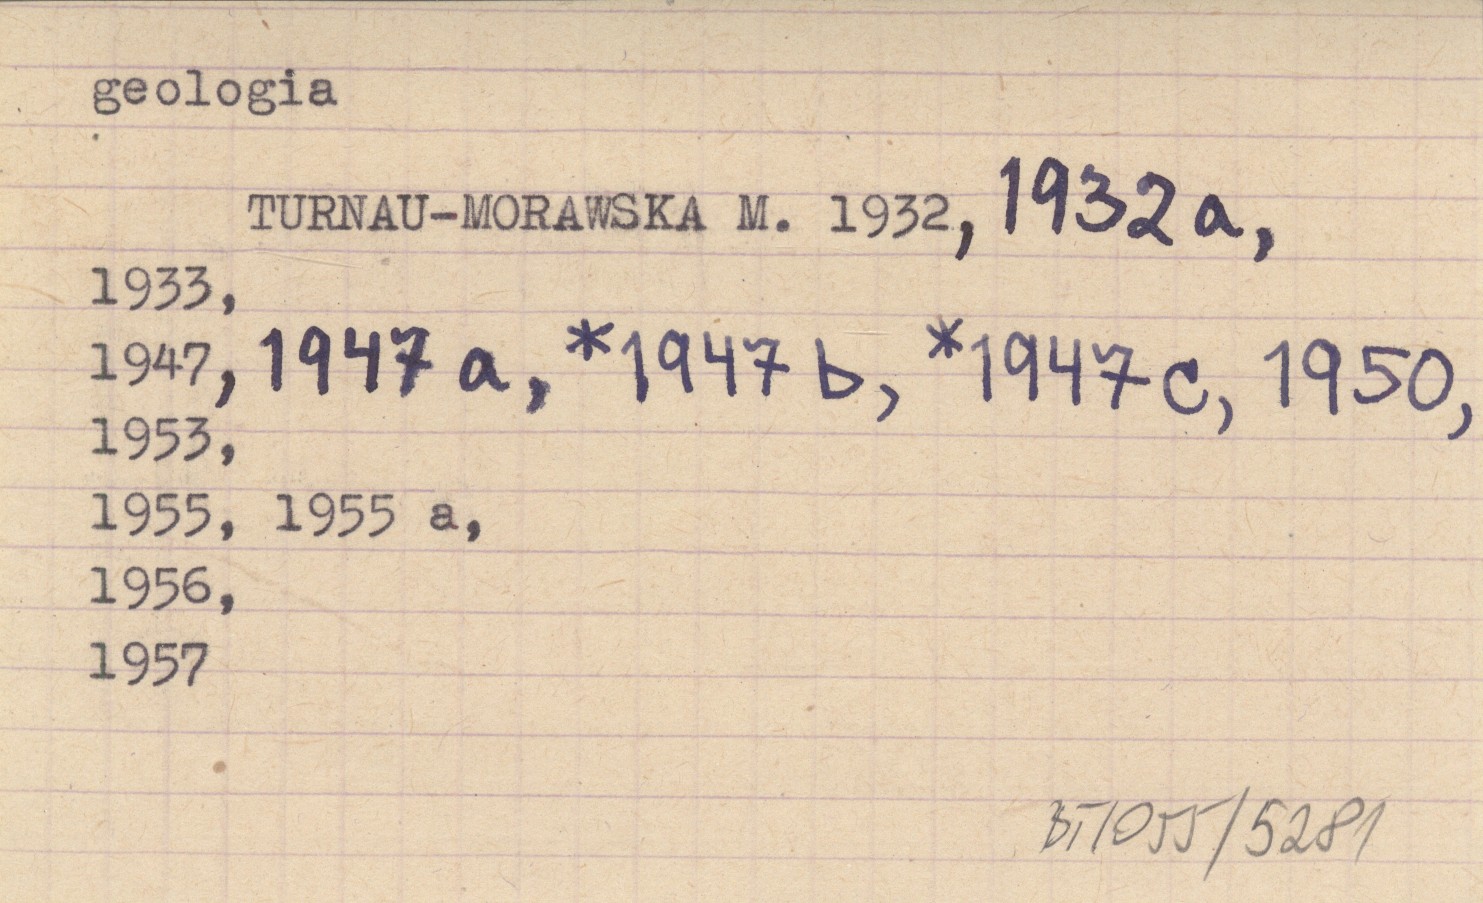 geologia
TURNAU-MORAWSKA M. 1932, 1932a,
1933,
1947, 1947 a, *1947 b, *1947 c, 1950,
1953,
1955, 1955 a,
1956,
1957
BT/055/5281